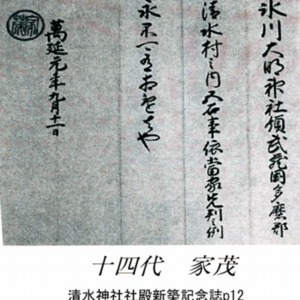 氷川大明神社領武蔵國多麻郡
清水村之内五石事依當家先判之例
永不可有相違者也
萬延元年九月十一日
十四代 家茂
清水神社社殿新築記念誌p12